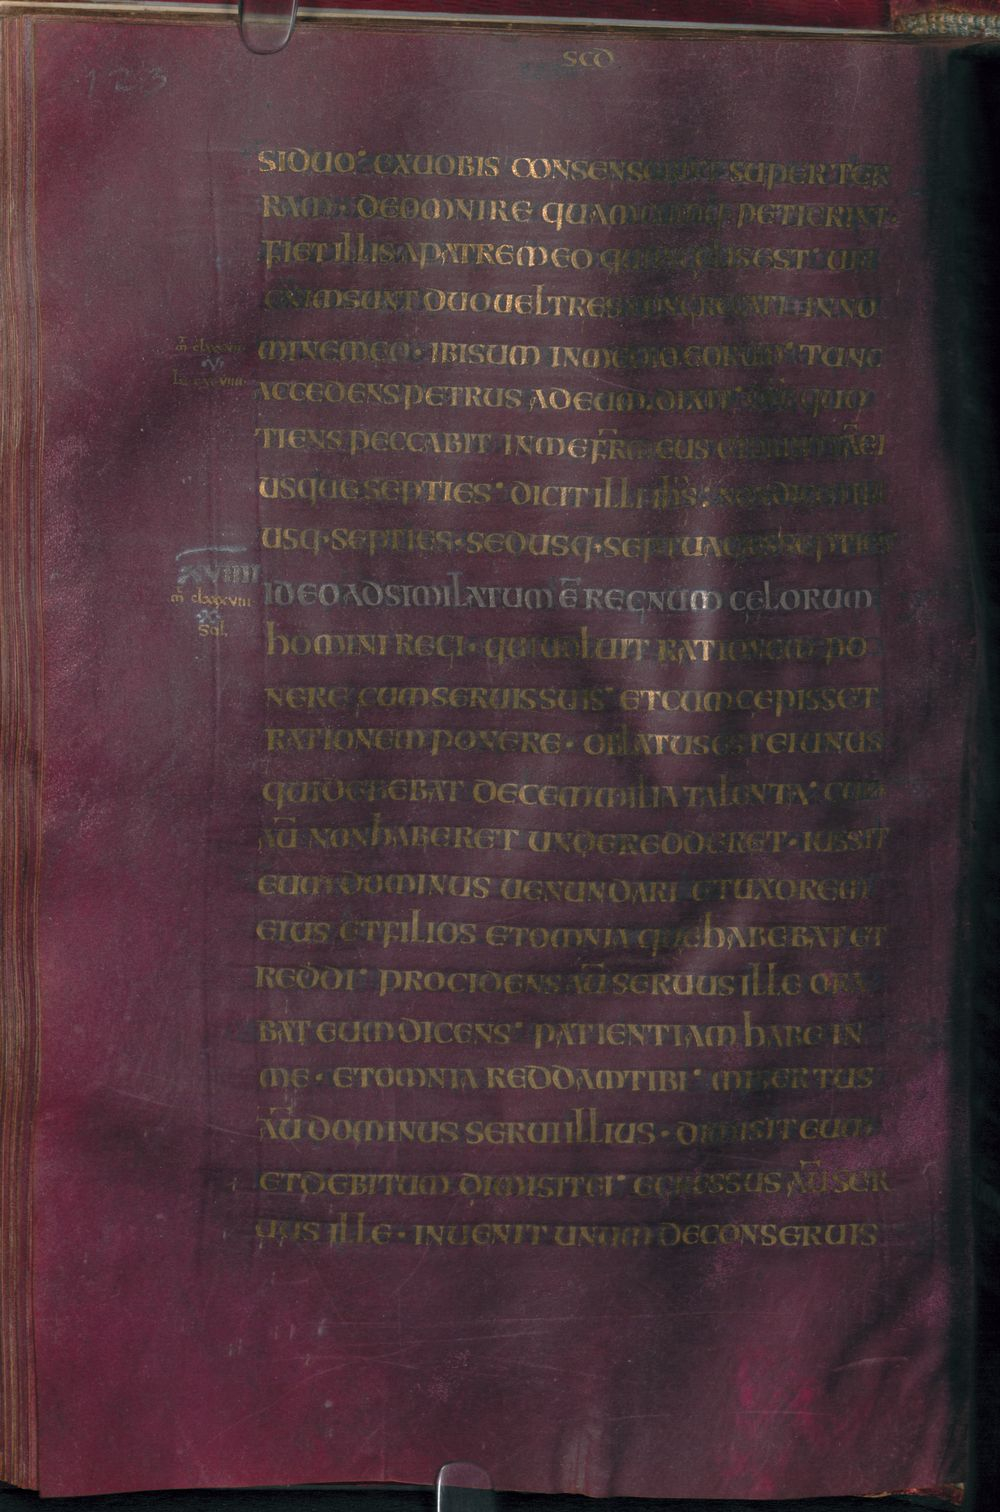 123
SCD
SIDUO· EXUOBIS CONSENSERINT SUPER TER
RAM· DEOMNIRE QUAMCUMQ· PETIERINT·
FIET ILLIS A PATRE MEO QUI IN EST· UBI
ENIM SUNT DUO UEL TRES CONGREGATI IN NO
MINE MEO· IBI SUM IN MEDIO EORUM· TUNC
ACCEDENS PETRUS AD EUM DIXIT· QUO
TIENS PECCABIT IN ME FR̄ MEUS ET EI
USQUE SEPTIES· DICIT ILLI IH̄S· NON DICO TIBI
USQ· SEPTIES· SED USQ· SEPTUAGIES SEPTIES
XVIIII
m̄ clxxxviii
x
Sol.
IDEO ADSIMILATUM Ē REGNUM CĘLORUM
HOMINI REGI· QUI UOLUIT RATIONEM PO
NERE CUM SERUIS SUIS· ET CUM CEPISSET
RATIONEM PONERE· OBLATUS EST EI UNUS
QUI DEBEBAT DECEM MILIA TALENTA· CUM
AŪ NON HABERET UNDE REDDERET· IUSSIT
EUM DOMINUS UENUNDARI ET UXOREM
EIUS ET FILIOS ET OMNIA QUE HABEBAT ET
REDDI· PROCIDENS AŪ SERUUS ILLE ORA
BAT EUM DICENS· PATIENTIAM HABE IN
ME· ET OMNIA REDDAM TIBI· MISERTUS
AŪ DOMINUS SERUI ILLIUS· DIMISIT EUM·
ET DEBITUM DIMISIT EI· EGRESSUS AŪ SER
UUS ILLE· INUENIT UNUM DE CONSERUIS